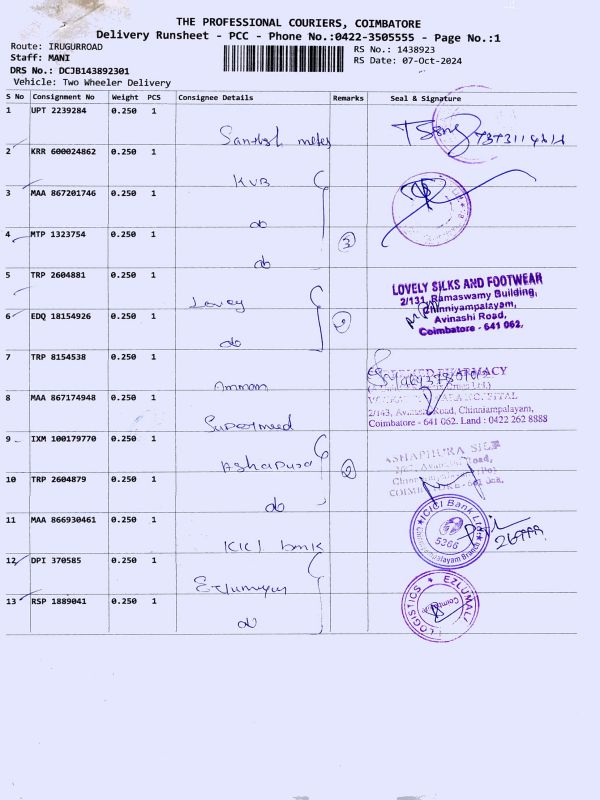 THE PROFESSIONAL COURIERS, COIMBATORE
Delivery Runsheet - PCC - Phone No.:0422-3505555 - Page No.:1
Route: IRUGURROAD
RS No.: 1438923
Staff: MANI
RS Date: 07-Oct-2024
DRS No.: DCJB143892301
Vehicle: Two Wheeler Delivery
S No Consignment No Weight PCS Consignee Details Remarks Seal & Signature
1 UPT 2239284 0.250 1
2 KRR 600024862 0.250 1 KVB
3 MAA 867201746 0.250 1 do
4 MTP 1323754 0.250 1 do 3
5 TRP 2604881 0.250 1
LOVELY SILKS AND FOOTWEAR
2/131, Ramaswamy Building,
Chinniyampalayam,
Avinashi Road,
Coimbatore - 641 062.
6 EDQ 18154926 0.250 1 do 2
7 TRP 8154538 0.250 1 Amman
PHARMACY
HOSPITAL
2/143, Avinashi Road, Chinniampalayam,
Coimbatore - 641 062. Land : 0422 262 8888
8 MAA 867174948 0.250 1 Supermeed
9 IXM 100179770 0.250 1 Ashapura 2
ASHAPHURA SILK
Avinashi Road,
10 TRP 2604879 0.250 1 do
11 MAA 866930461 0.250 1 ICICI bank
ICICI Bank Ltd
5366
12 DPI 370585 0.250 1
13 RSP 1889041 0.250 1 do
EZLUMALI LOGISTICS